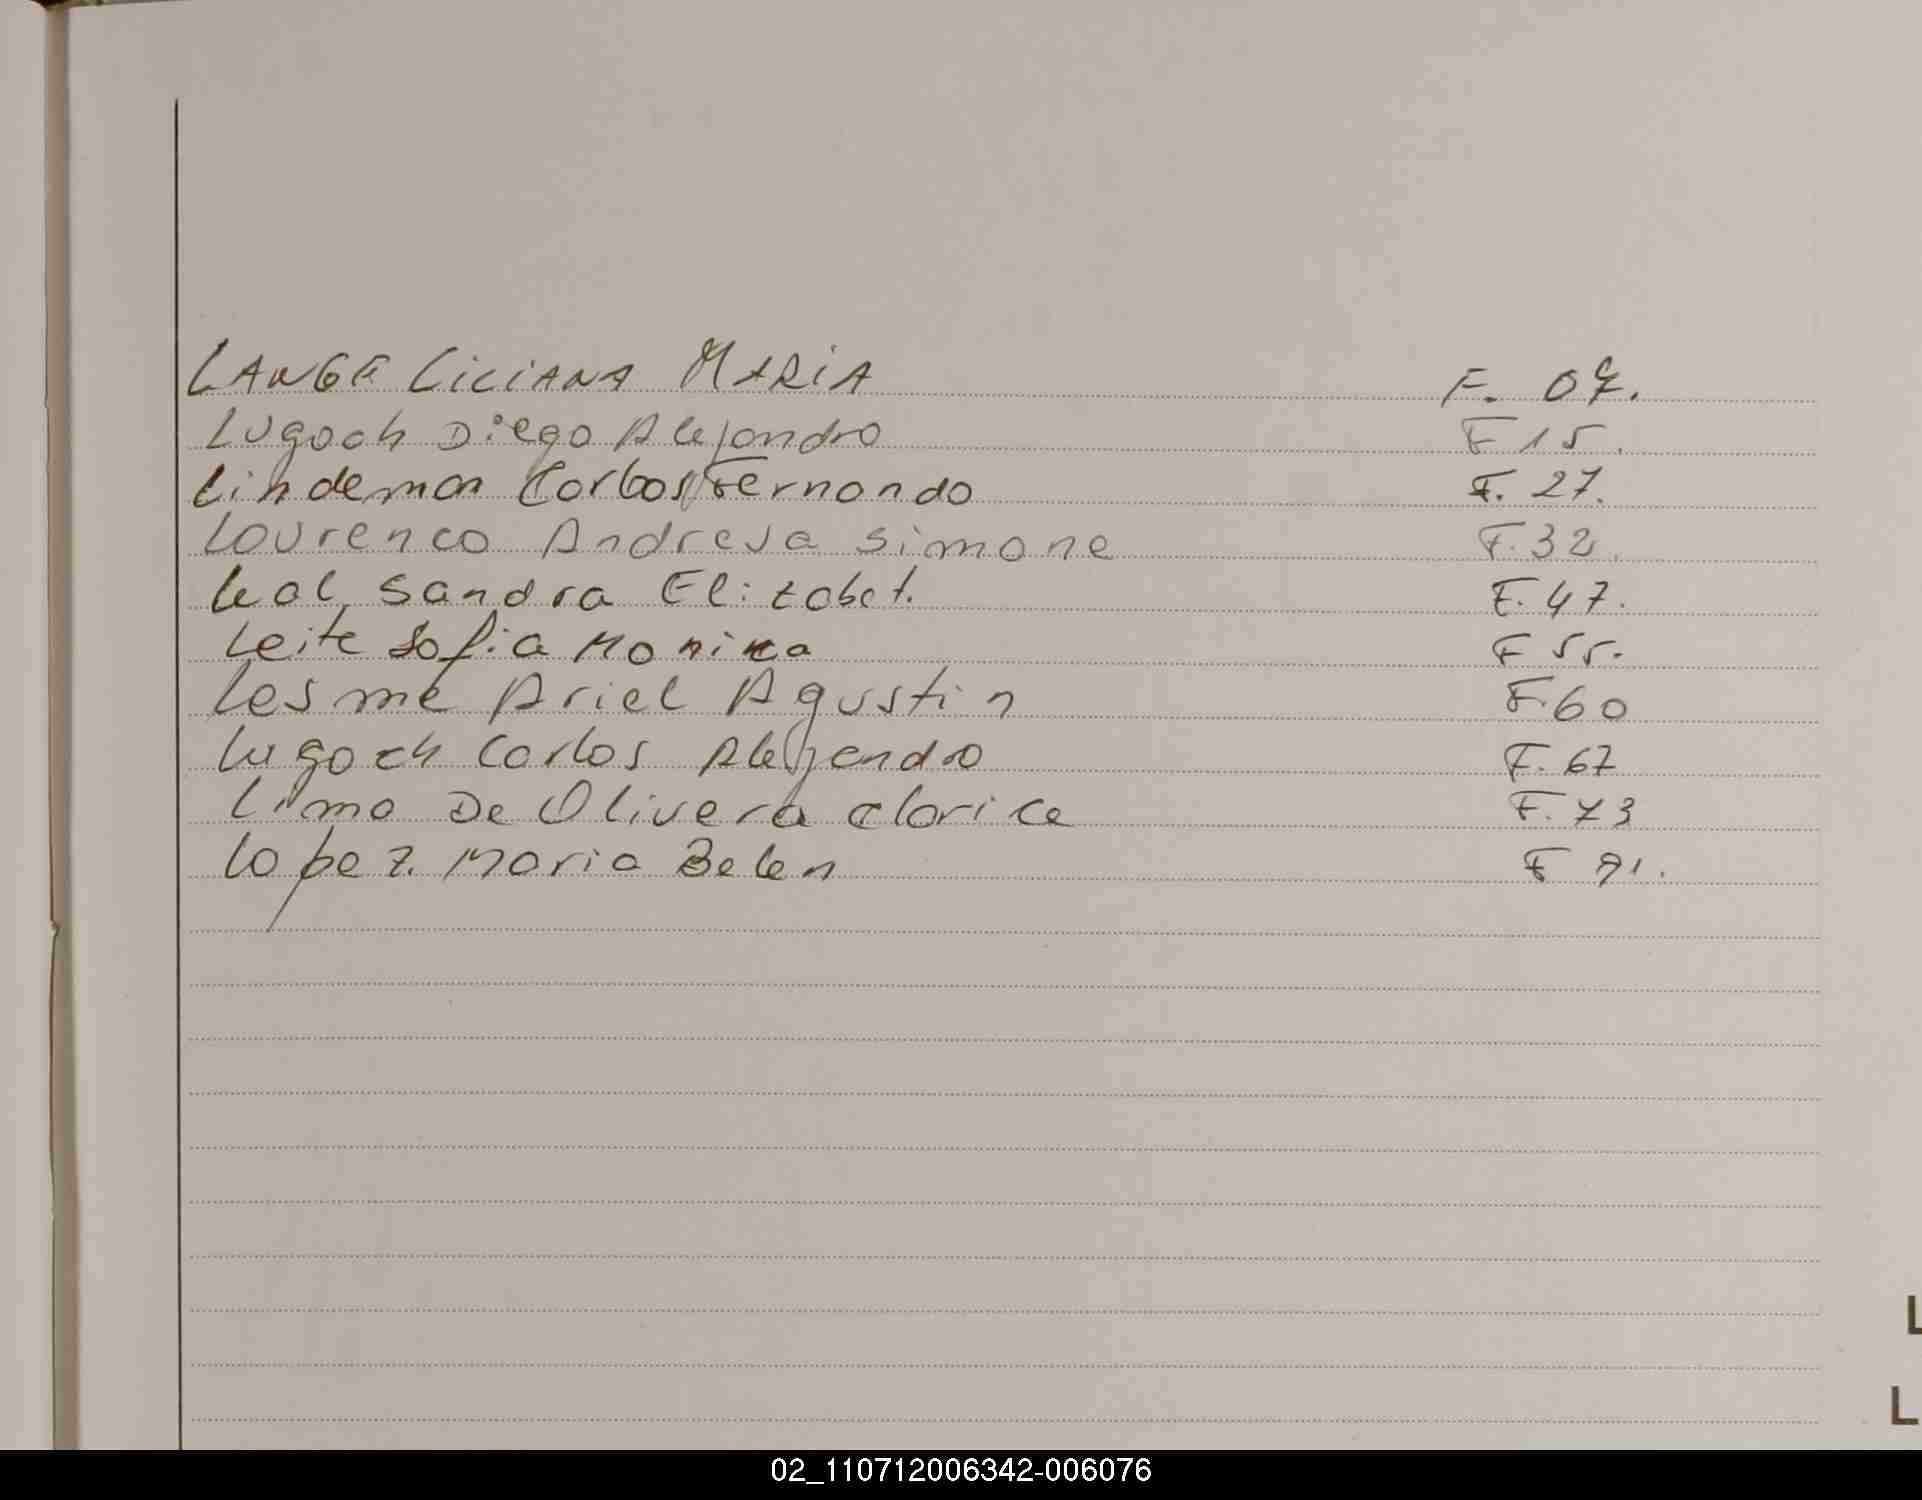 LANGE LILIANA MARIA F. 07.
Lugoch Diego Alejandro F 15.
Lindeman Carlos Fernando F. 27.
Lourenco Andreva Simone F. 32.
Leal, Sandra Elizabet. F. 47.
Leite Sofia Monica F 55.
Lesme Ariel Agustin F. 60
Lugoch Carlos Alejandro F. 67
Lima De Olivera Clarice F. 73
Lopez. Maria Belen F 71.
L
L
02_110712006342-006076